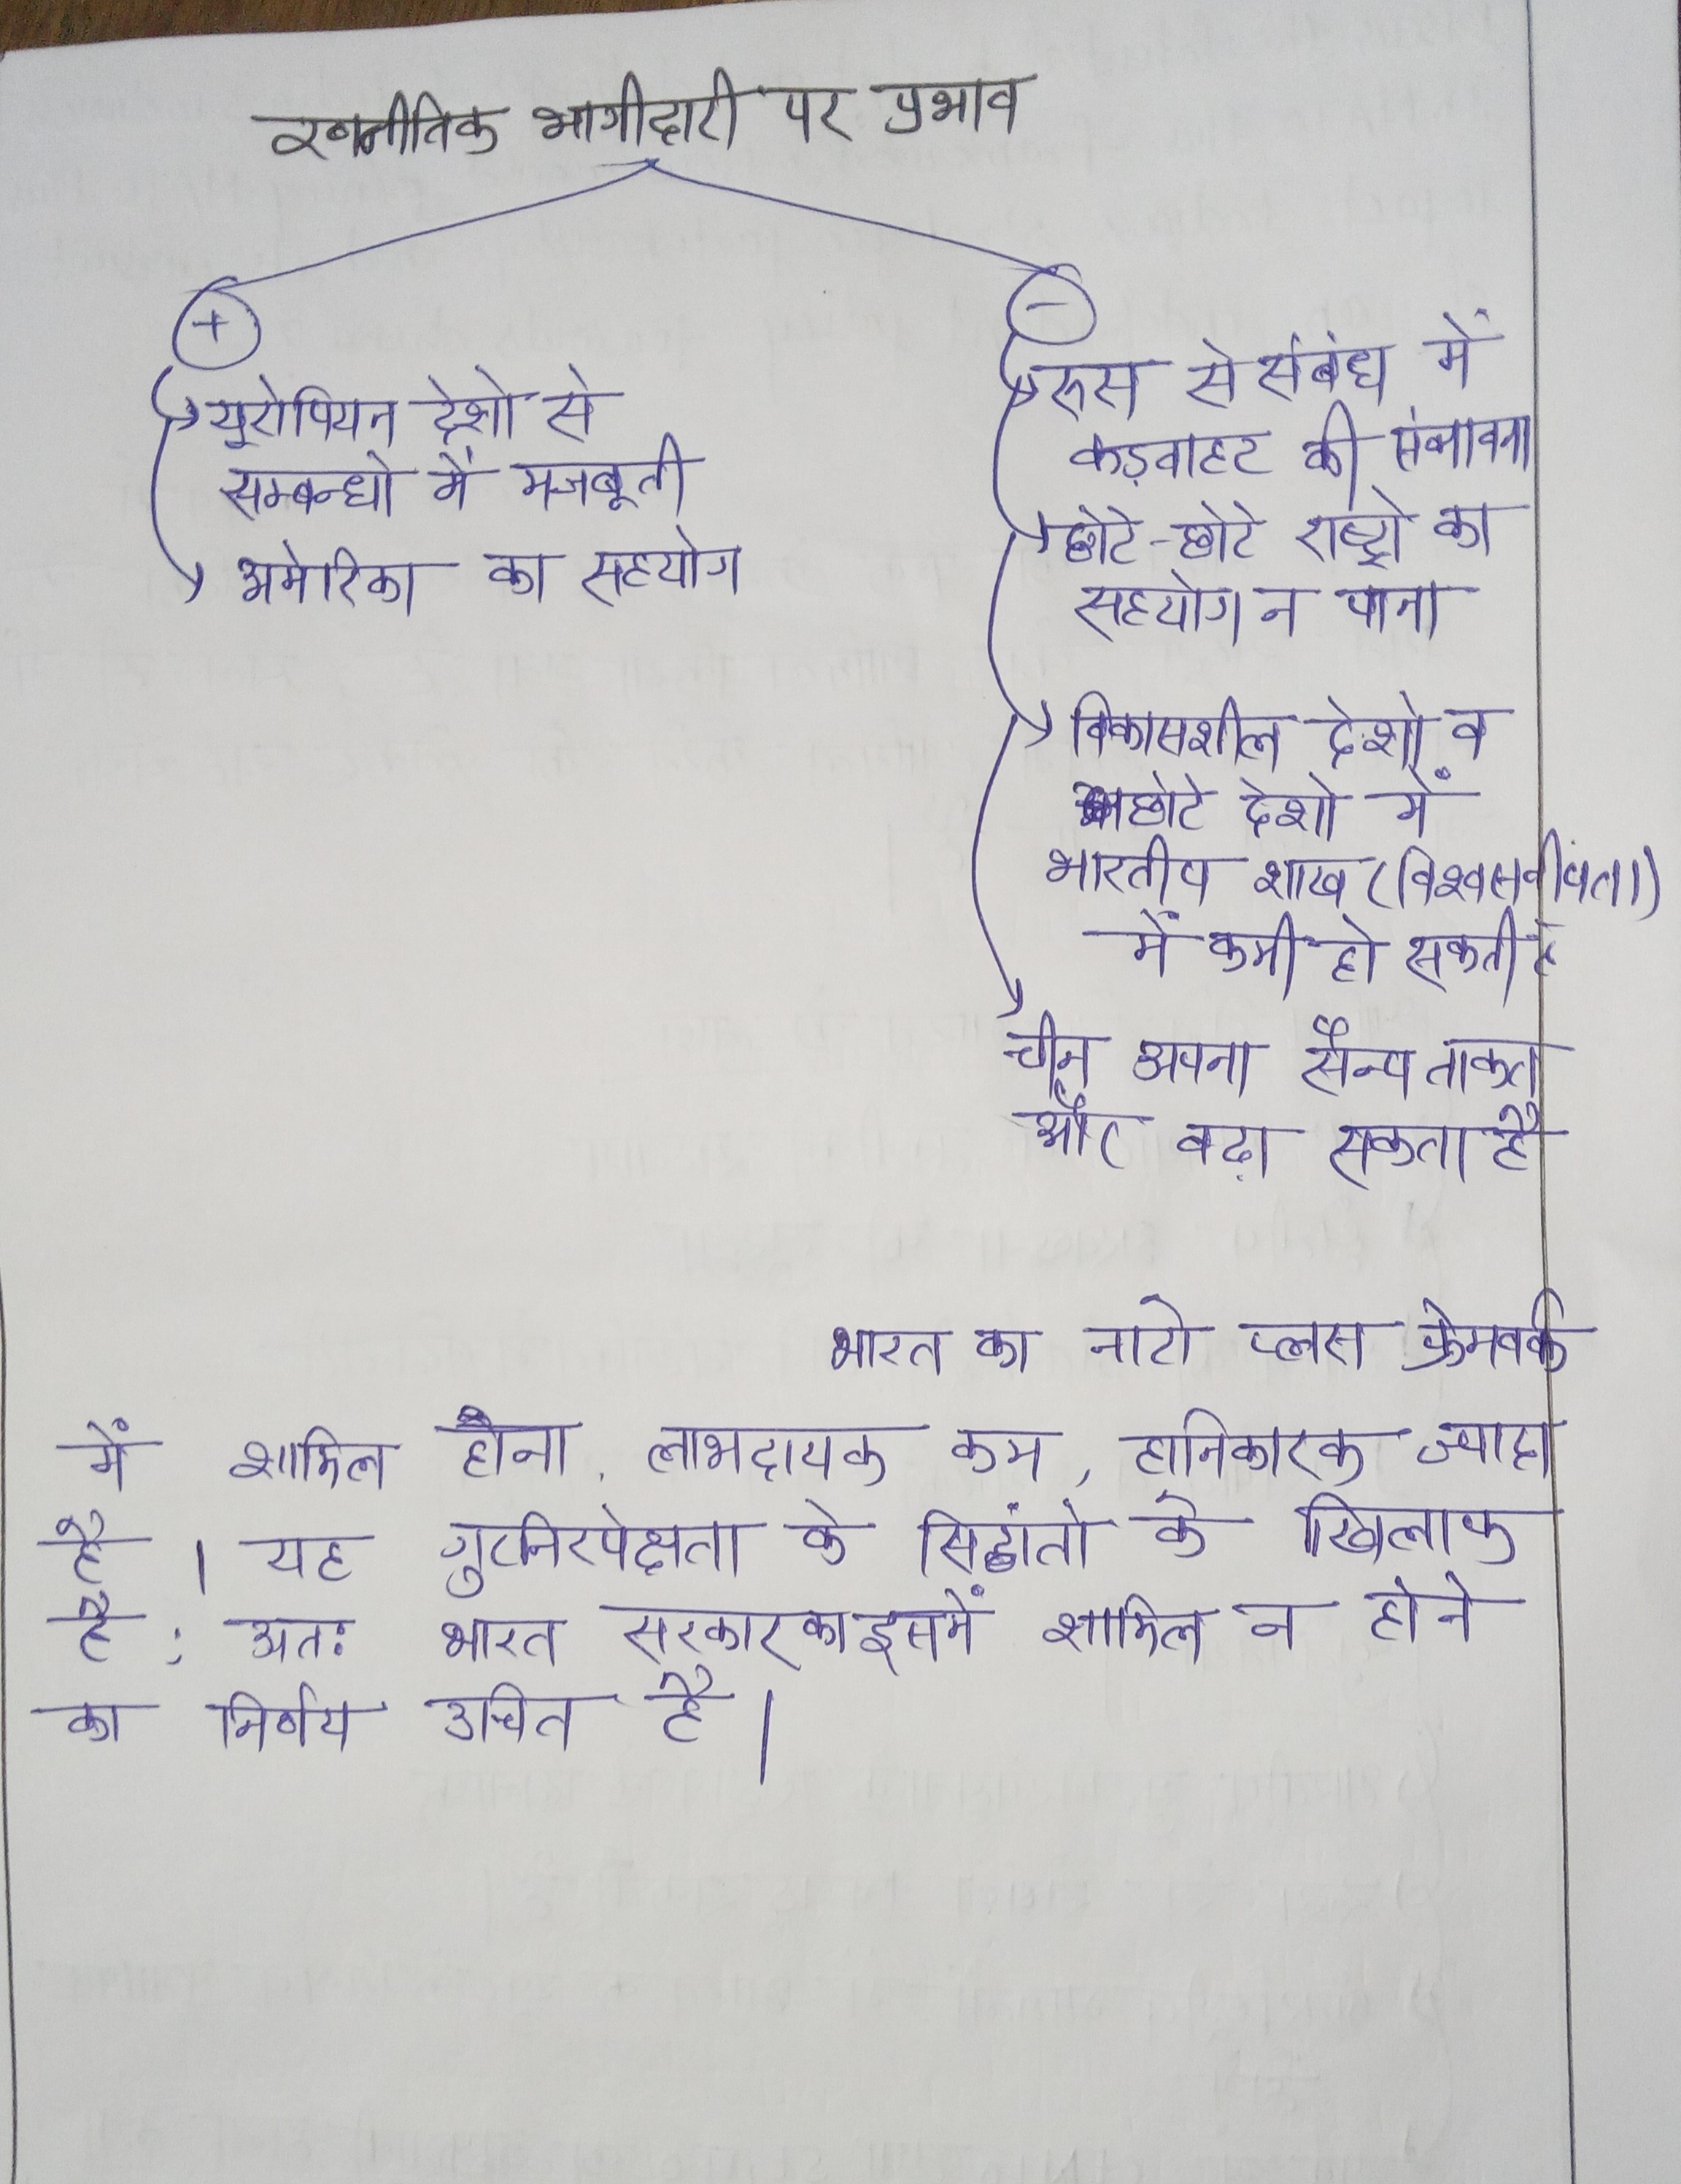 रणनीतिक भागीदारी पर प्रभाव
+
यूरोपियन देशो से
सम्बन्धो में मजबूती
अमेरिका का सहयोग
-
रुस से संबंध में
कड़वाहट की संभावना
छोटे-छोटे राष्ट्रो का
सहयोग न पाना
विकासशील देशो व
छोटे देशो में
भारतीय शाख (विश्वसनीयता)
में कमी हो सकती है
चीन अपना सैन्य ताकत
और बढ़ा सकता है
भारत का नाटो प्लस फ्रेमवर्क
में शामिल होना, लाभदायक कम, हानिकारक ज्यादा
है । यह गुटनिरपेक्षता के सिद्धांतो के खिलाफ
है; अतः भारत सरकार का इसमें शामिल न होने
का निर्णय उचित है ।